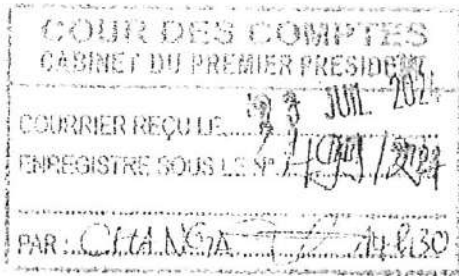 COUR DES COMPTES
CABINET DU PREMIER PRESIDENT
COURRIER REÇU LE 23 JUIL. 2024
ENREGISTRE SOUS LE N°
PAR : 14h30